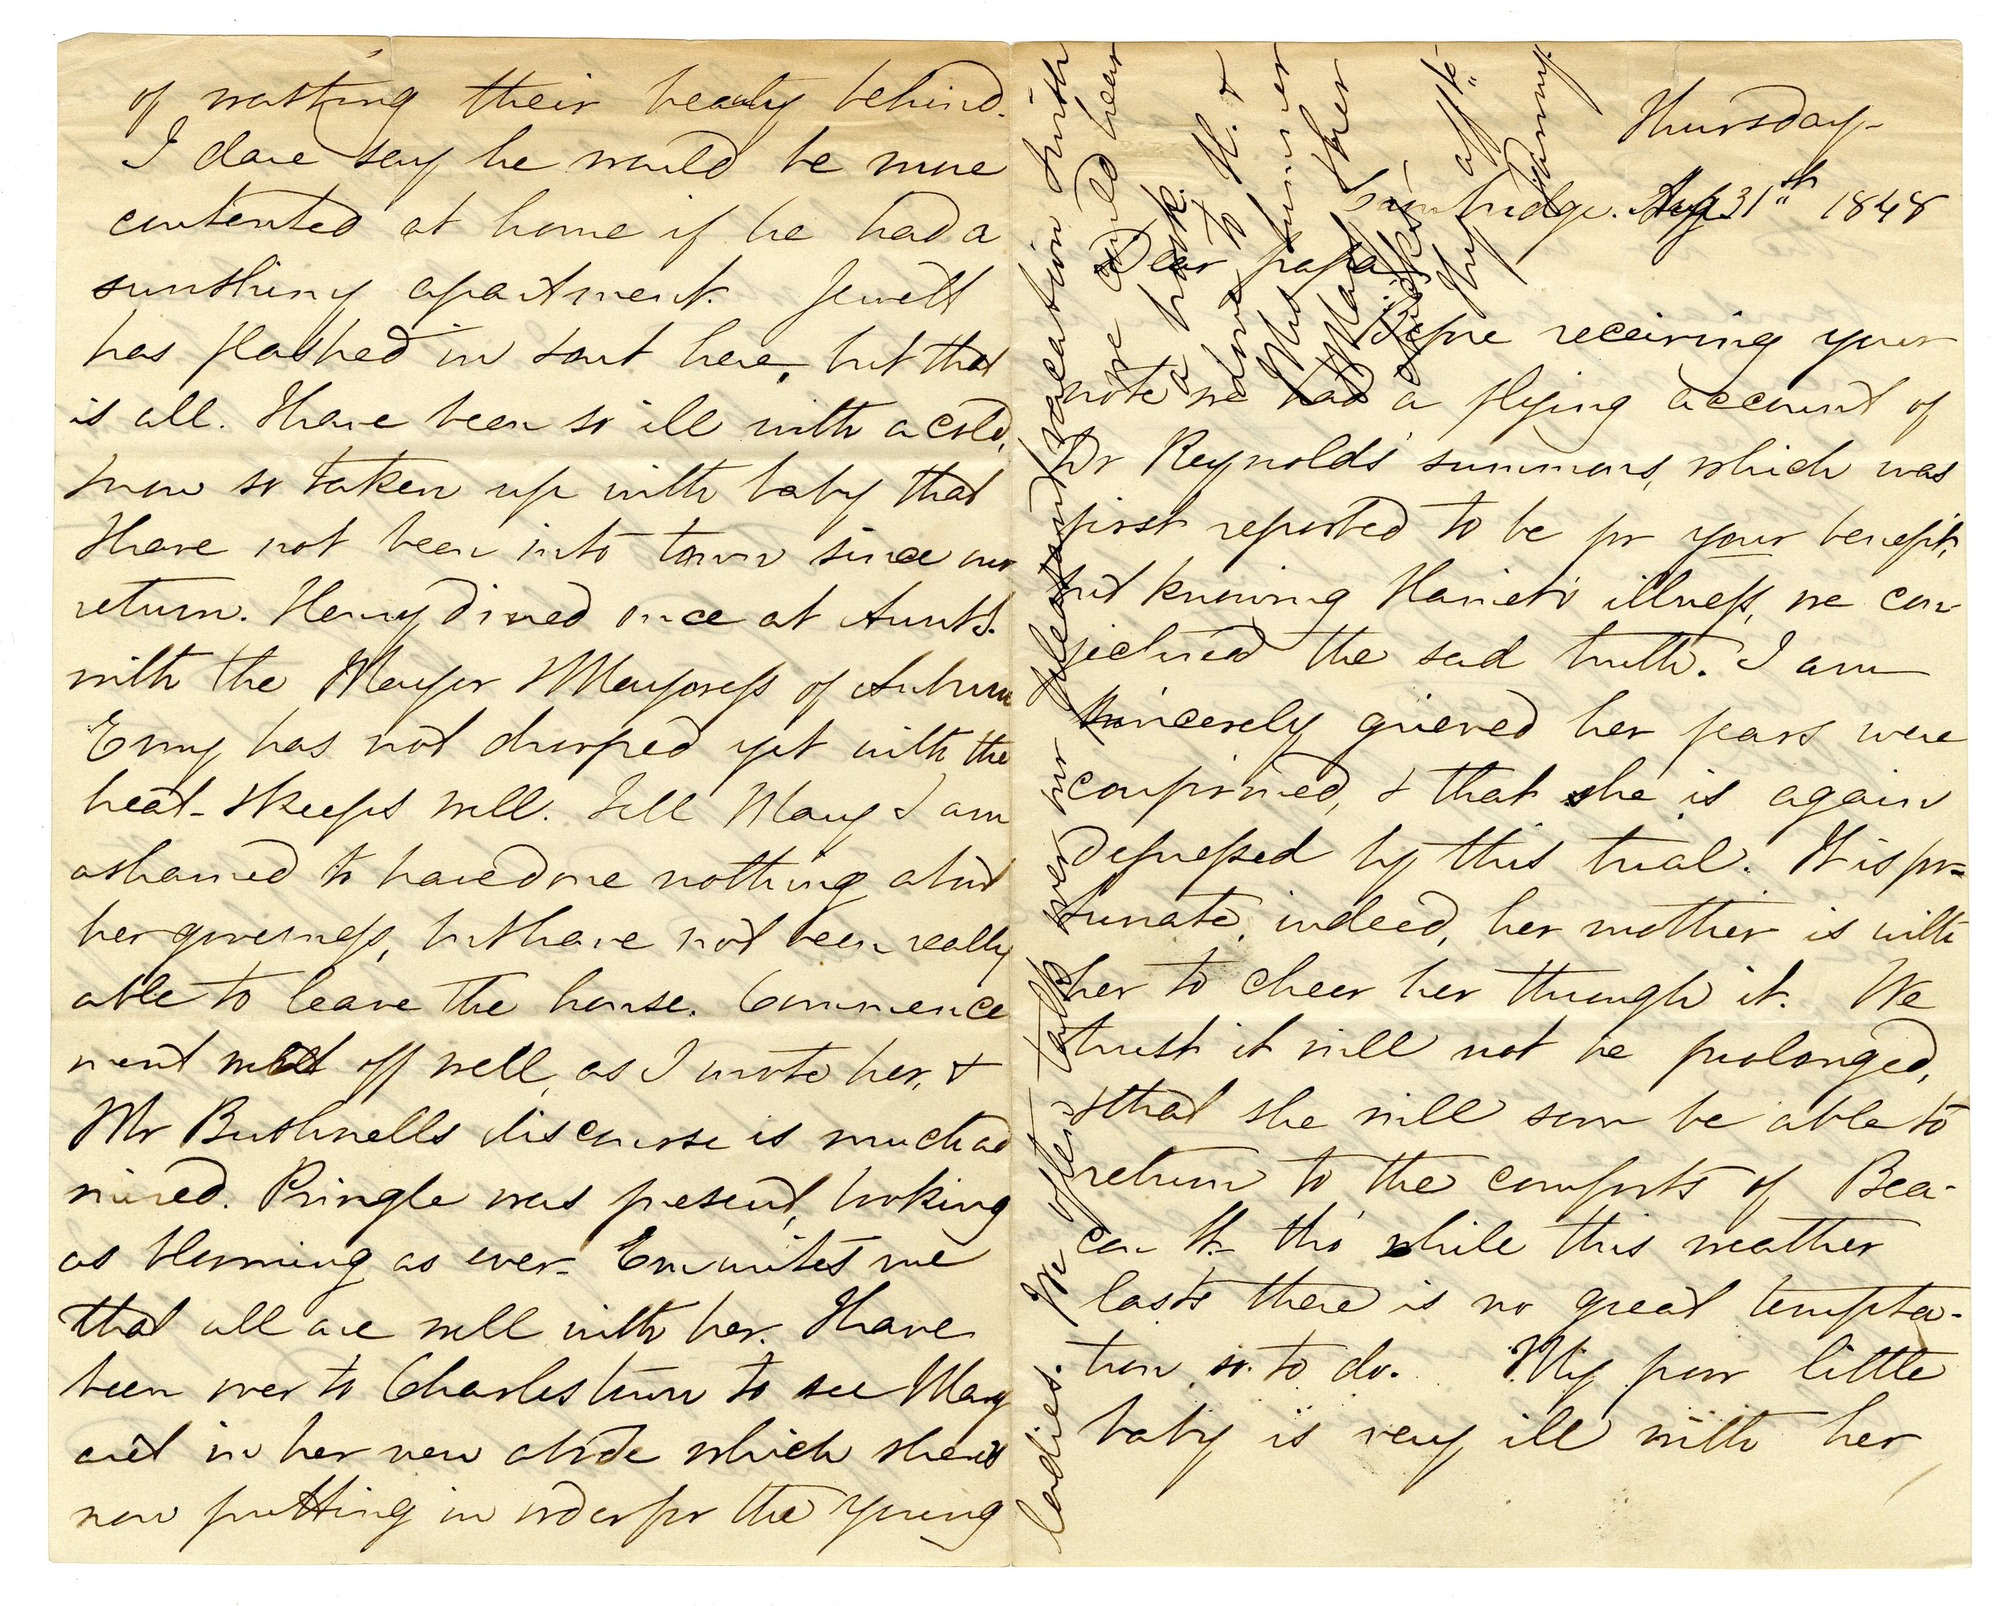 Thursday-
Cambridge. Aug 31st 1848
Dear papa,
Before receiving your
note we had a flying account of
Dr Reynolds' summons, which was
first reported to be for your benefit,
but knowing Harriet's illness, we con-
jectured the sad truth. I am
sincerely grieved her fears were
confirmed, & that she is again
depressed by this trial. It is for-
tunate, indeed, her mother is with
her to cheer her through it. We
trust it will not be prolonged,
& that she will soon be able to
return to the comforts of Bea-
con St- tho' while this weather
lasts there is no great tempta-
tion so to do. My poor little
baby is very ill with her
of wasting their beauty behind.
I dare say he would be more
contented at home if he had a
sunshiny apartment. Jewett
has flashed in & out here, but that
is all. I have been so ill with a cold,
& now so taken up with baby that
I have not been into town since our
return. Henry dined once at Aunt S.
with the Mayor & Mayoress of Auburn
Emy has not drooped yet with the
heat- & keeps well. Tell Mary I am
ashamed to have done nothing about
her governess, but have not been really
able to leave the house. Commence
ment went off well, as I wrote her, &
Mr Bushnells discourse is much ad
mired. Pringle was present, looking
as blooming as ever- Em writes me
that all are well with her. I have
been over to Charlestown to see Mary
and in her new abode which she is
now putting in order for the young
ladies. We often talk over our pleasant vacation & wish
we could hear
love to H. &
Mrs Sumner
Mary. Ever
aff'te
Fanny.